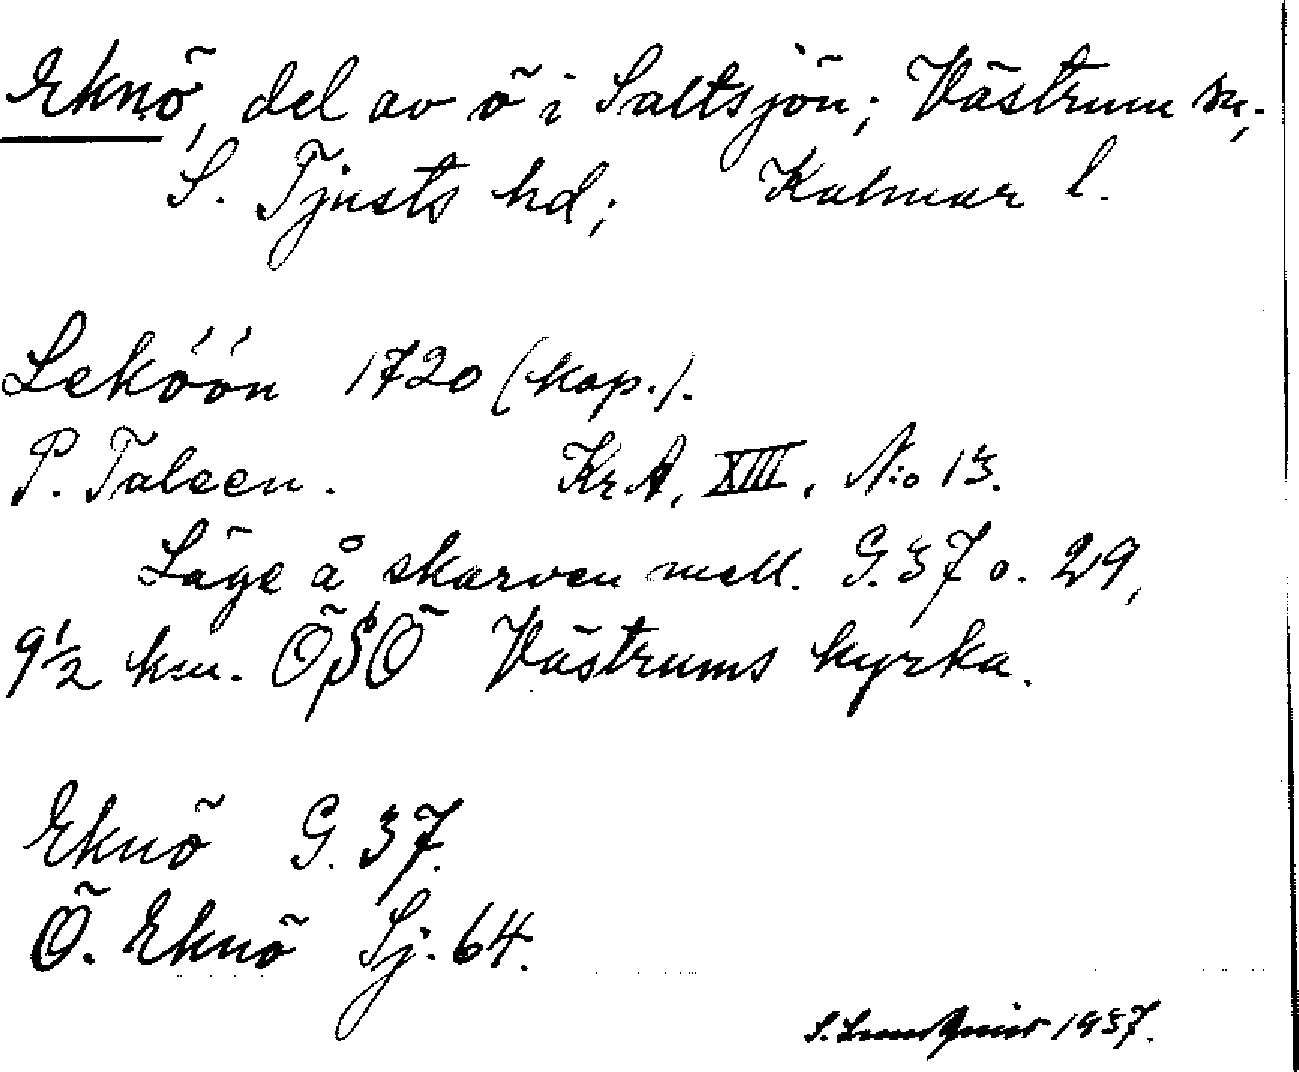 Eknö, del av ö i Saltsjön; Västrum sn,
S. Tjusts hd; Kalmar l.
Leköön 1720 (kop.).
P. Taleen. KrA, XIII, N:o 13.
Läge å skarven mell. G. 37 o. 29,
9½ km. ÖSÖ Västrums kyrka.
Eknö G. 37.
Ö. Eknö Sj. 64.
S. Lundquist 1937.